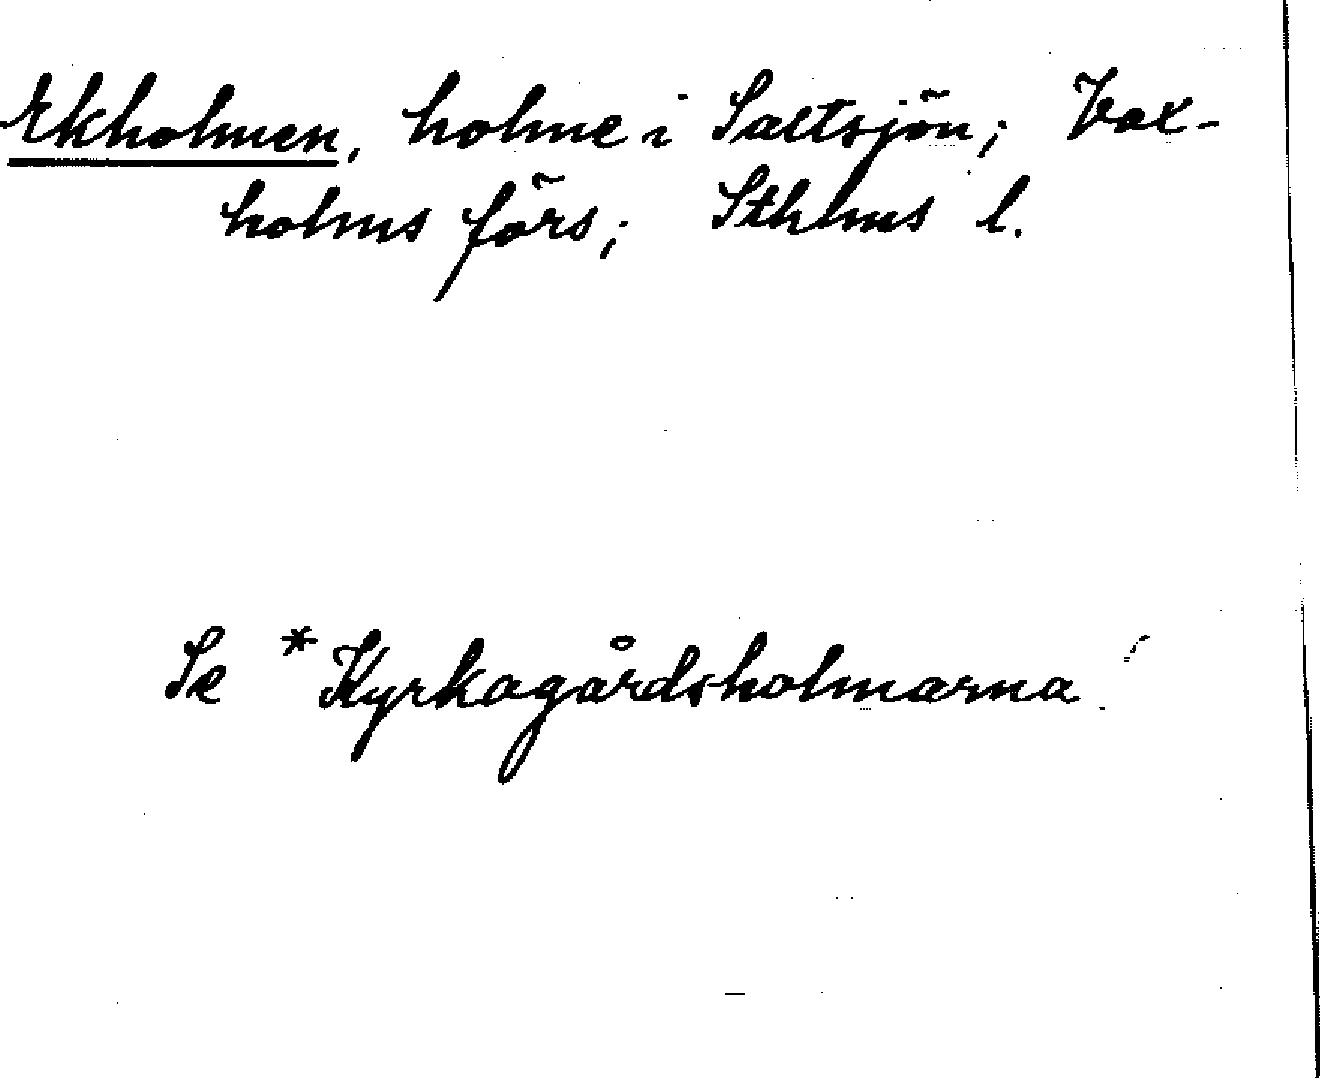 Ekholmen, holme i Saltsjön; Vax-
holms förs; Sthlms l.
Se *Kyrkogårdsholmarna